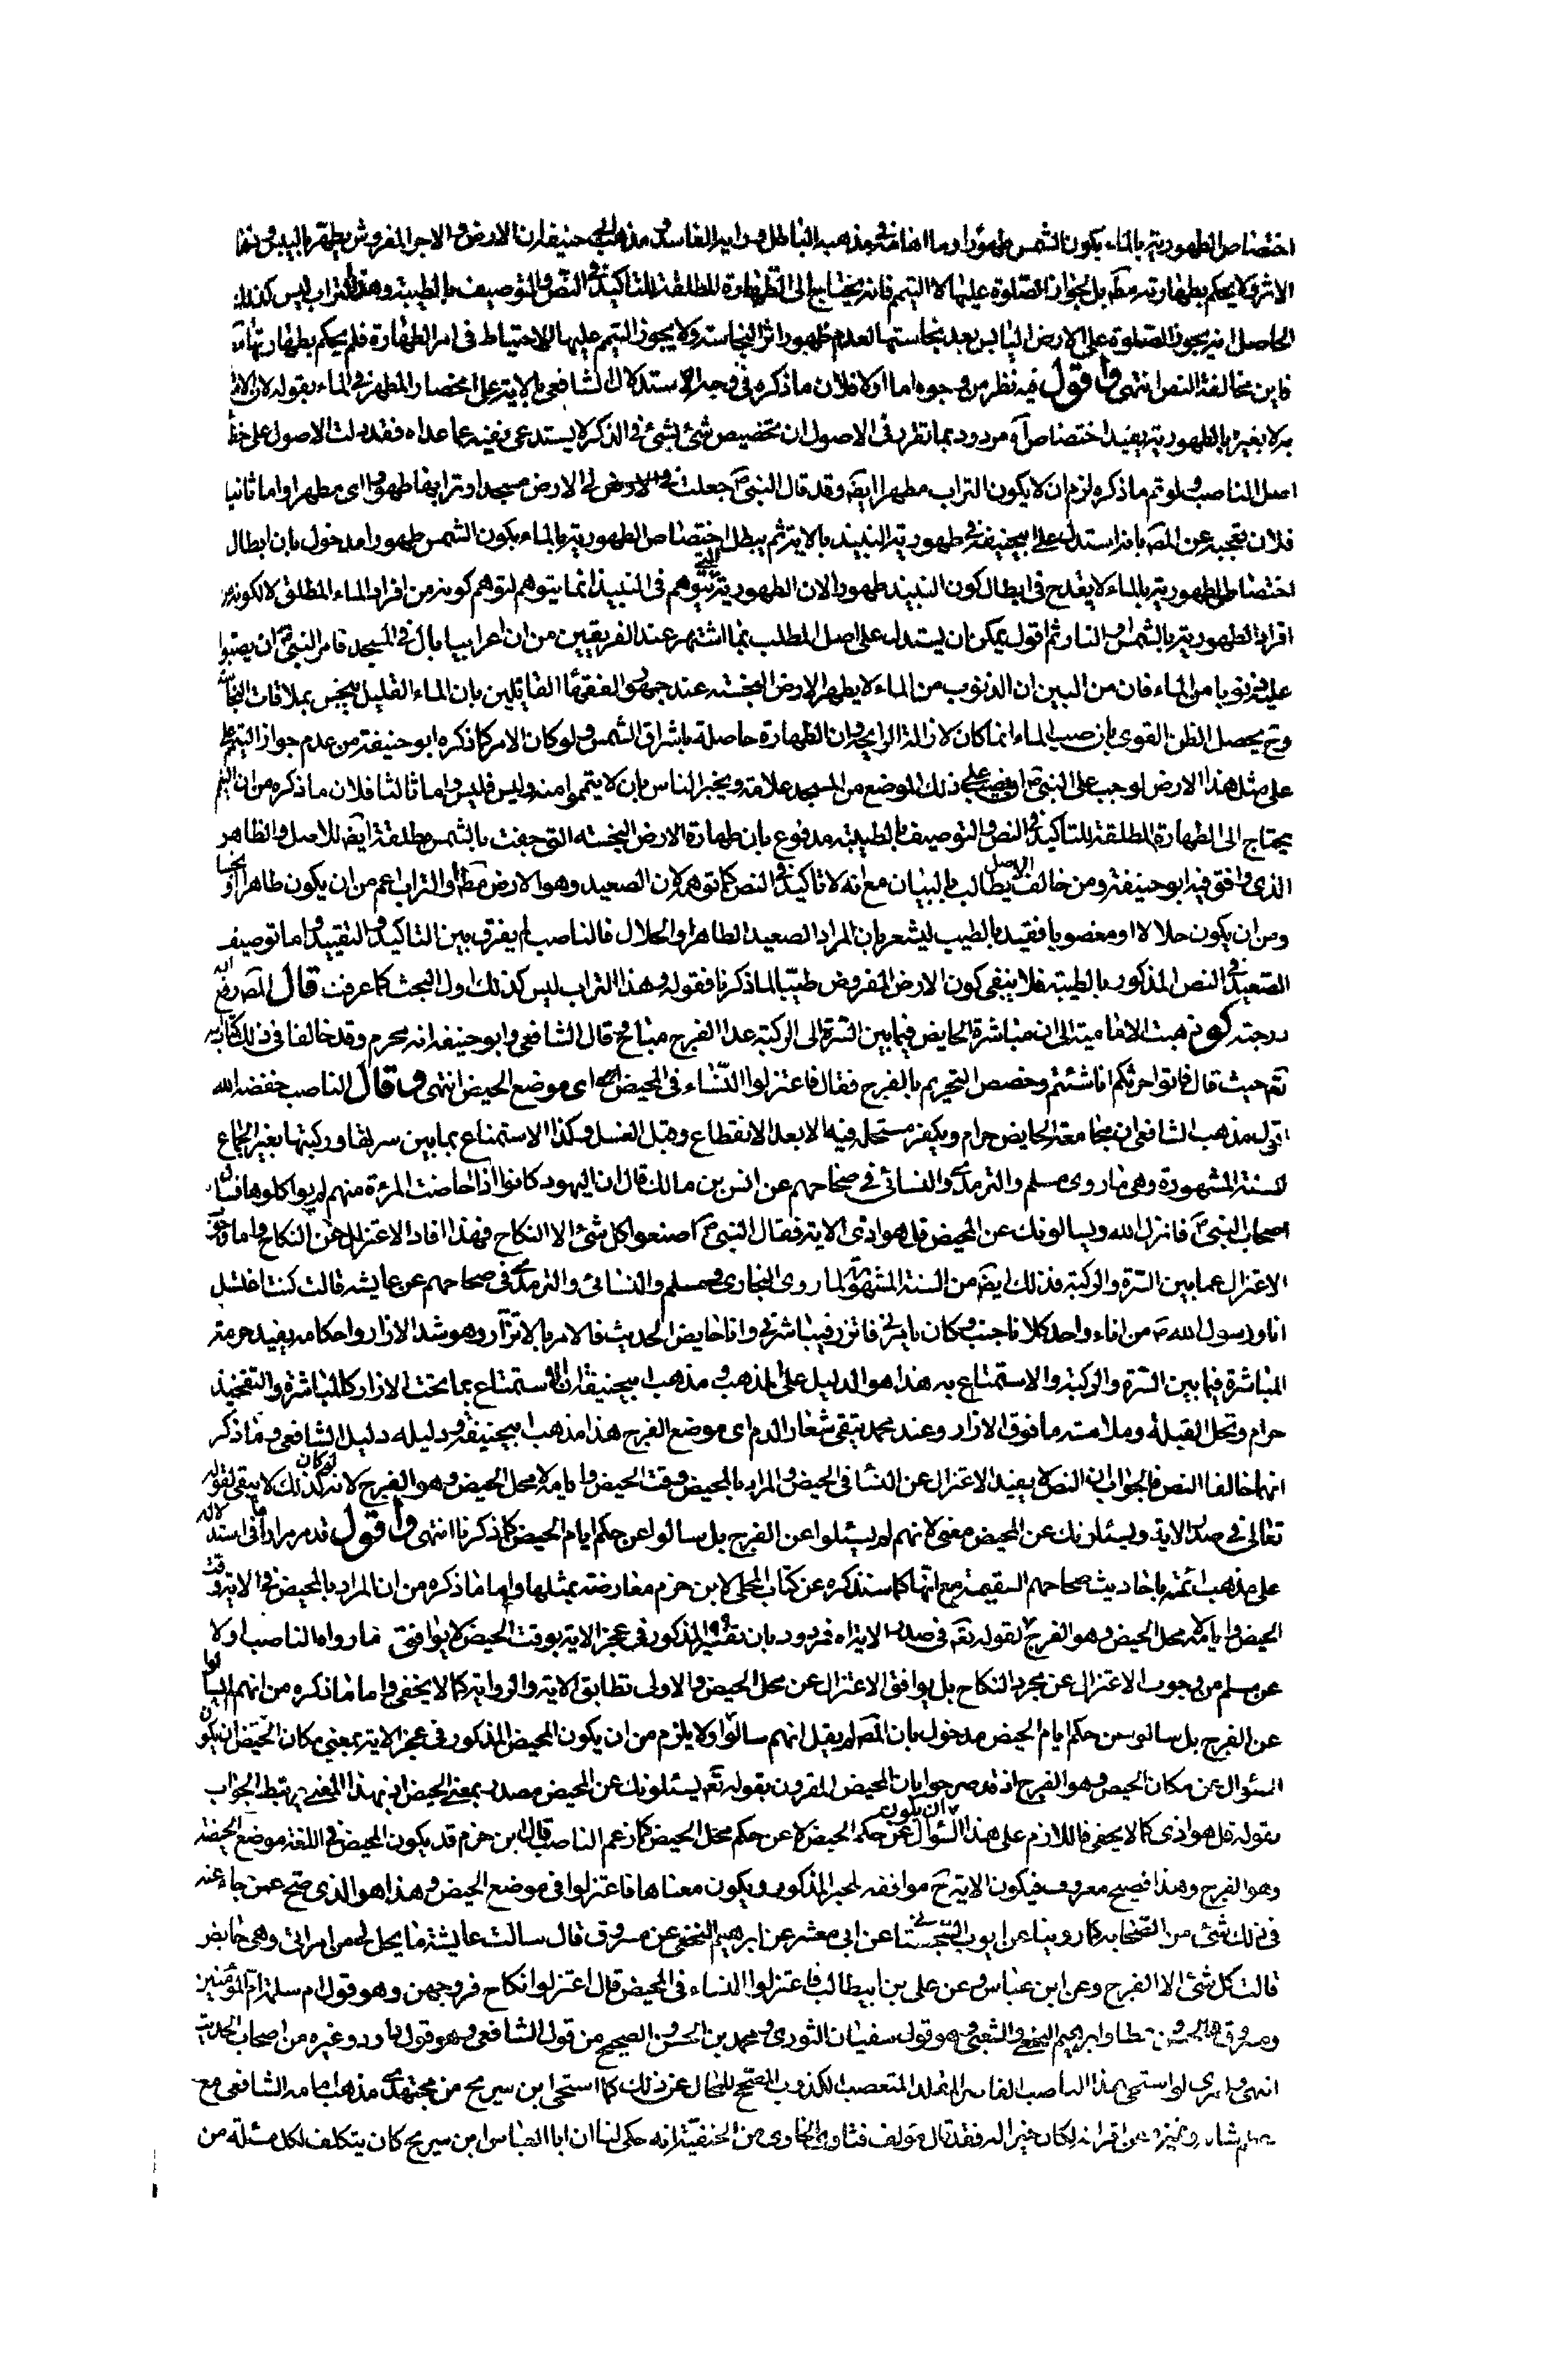 اختصاص الطهورية بالماء يكون الشمس طهورا وما اضافه في مذهبه الباطل ورايه الفاسد مذهب ابي حنيفة ان الارض والاجر المفروش يطهر باليبس وذهاب
الاثر ولا يحكم بطهارته مطلقا بل بجواز الصلوة عليها لا التيمم فانه يحتاج الى الطهارة المطلقة للتاكيد في النص والتوصيف بالطيبة وهذا التراب ليس كذلك
الحاصل انه يجوز الصلوة على الارض اليابس بعد نجاستها لعدم ظهور اثر النجاسة ولا يجوز التيمم عليها للاحتياط في امر الطهارة فلم يحكم بطهارتها
فاين مخالفة النص انتهى واقول فيه نظر من وجوه اما اولا فلان ما ذكره في وجه الاستدلال الشافعي بالاية على انحصار المطهر في الماء بقوله لان
به لا بغيره بالطهورية يفيد اختصاص آه مردود بما تقرر في الاصول ان تخصيص شئ بشئ في الذكر لا يستدعى نفيه عما عداه فقد دلت الاصول على
اصل الناصب ولو تم ما ذكره لزم ان لا يكون التراب مطهرا ايضا وقد قال النبي ص جعلت لى الارض مسجدا وترابها طهورا اى مطهرا واما ثانيا
فلان تعجبه عن المص بانه استدل على ابيحنيفة في طهورية النبيذ بالاية ثم يبطل اختصاص الطهورية بالماء يكون الشمس طهورا مدخول بان ابطال
اختصاص الطهورية بالماء لا يقدح في ابطال كون النبيذ طهورا لان الطهورية التي يتوهم في النبيذ انما يتوهم لتوهم كونه من افراد الماء المطلق لا لكونه من
افراد الطهورية بالشمس والنار ثم اقول يمكن ان يستدل على اصل المطلب بما اشتهر عند الفريقين من ان اعرابيا بال في المسجد فامر النبي ص ان يصبوا
عليه ذنوبا من الماء فان من البين ان الذنوب من الماء لا يطهر الارض النجسة عند جمهور الفقهاء القائلين بان الماء القليل ينجس بملاقات النجاسة
وح يحصل الظن القوى بان صب الماء انما كان لازالة الرايحة وان الطهارة حاصلة باشراق الشمس ولو كان الامر كما ذكره ابو حنيفة من عدم جواز التيمم
على مثل هذا الارض لوجب على النبي ص ان ينصب على ذلك الموضع من المسجد علامة ويخبر الناس بان لا يتيمموا منه وليس فليس واما ثالثا فلان ما ذكره من ان التيمم
يحتاج الى الطهارة المطلقة للتاكيد في النص والتوصيف بالطيبة مدفوع بان طهارة الارض النجسة التي جفت بالشمس مطلقة ايضا للاصل والظاهر
الذى وافق فيه ابو حنيفة ومن خالف الاصل يطالب بالبيان مع انه لا تاكيد في النص كما توهم لان الصعيد وهو الارض مطلقا او التراب اعم من ان يكون طاهرا او نجسا
ومن ان يكون حلالا او مغصوبا فقيد بالطيب ليشعر بان المراد الصعيد الطاهر والحلال فالناصب لم يفرق بين التاكيد والتقييد واما توصيف
الصعيد في النص المذكور بالطيبة فلا ينفى كون الارض المفروض طيبا لما ذكرنا فقوله وهذا التراب ليس كذلك اول البحث كما عرفت قال المص رفع الله
درجته كو ذهبت الامامية الى ان مباشرة الحايض فيما بين السرة الى الركبة عدا الفرج مباح قال الشافعي وابو حنيفة انه محرم وقد خالفا في ذلك كتاب الله
تعم حيث قال فاتوا حرثكم انا شئتم وخصص التحريم بالفرج فقال فاعتزلوا النساء في المحيض اى موضع الحيض انتهى وقال الناصب خفضه الله
اقول مذهب الشافعي ان مجامعة الحايض حرام ويكفر مستحله فيه الا بعد الانقطاع وقبل الغسل وكذا الاستمتاع بما بين سرتها وركبتها بغير الجماع
للسنة المشهورة وهي ما روى مسلم والترمذى والنسائي في صحاحهم عن انس بن مالك قال ان اليهود كانوا اذا حاضت المرئة منهم لم يواكلوها فسال
اصحاب النبي ص فانزل الله ويسالونك عن المحيض قل هو اذى الاية فقال النبي ص اصنعوا كل شئ الا النكاح فهذا افاد الاعتزال عن النكاح واما وجوب
الاعتزال عما بين السرة والركبة فذلك ايضا من السنة المشهورة لما روى البخارى ومسلم والنسائي والترمذى في صحاحهم عن عايشة قالت كنت اغتسل
انا ورسول الله ص من اناء واحد كلانا جنب وكان يامرني فاتزر فيباشرني وانا حايض الحديث فالامر بالاتزار وهو شد الازار واحكامه يفيد حرمة
المباشرة فيما بين السرة والركبة والاستمتاع به هذا هو الدليل على المذهب ومذهب ابيحنيفة ان الاستمتاع بما تحت الازار كالمباشرة والتفخيذ
حرام وتحل القبلة وملامسة ما فوق الازار وعند محمد تبقى شعار الدم اى موضع الفرج هذا مذهب ابيحنيفة ودليله دليل الشافعي وما ذكر
انهما خالفا النص فالجواب ان النص لا يفيد الاعتزال عن النسا في الحيض والمراد بالمحيض وقت الحيض وايامه لا محل الحيض وهو الفرج لانه لو كان كذلك لا يبقى لقوله
تعالى في صدر الاية ويسئلونك عن المحيض معنى لانهم لم يسئلوا عن الفرج بل سالوا عن حكم ايام الحيض كما ذكرنا انتهى واقول قد مر مرارا ما في استدلاله
على مذهب ائمته باحاديث صحاحهم السقيمة مع انها كما سنذكره عن كتاب المحلى لابن حزم معارضة بمثلها واما ما ذكره من ان المراد بالمحيض في الاية وقت
الحيض وايامه لا محل الحيض وهو الفرج لقوله تعم في صدر الاية اه فمردود بان تفسير المذكور في عجز الاية بوقت الحيض لا يوافق ما رواه الناصب اولا
عن مسلم من وجوب الاعتزال عن مجرد النكاح بل يوافق الاعتزال عن محل الحيض والاولى تطابق الاية والرواية كما لا يخفى واما ما ذكره من انهم لم يسالوا
عن الفرج بل سالوا عن حكم ايام الحيض مدخول بان المص لم يقل انهم سالوا ولا يلزم من ان يكون المحيض المذكور في عجز الاية بمعنى مكان الحيض ان يكون
السئوال عن مكان الحيض وهو الفرج اذ قد صرحوا بان المحيض المقرون بقوله تعم يسئلونك عن المحيض مصدر بمعنى الحيض اذ بهذا المعنى يرتبط الجواب
بقوله قل هو اذى كما لا يخفى فاللازم على هذا ان يكون السئوال عن حكم الحيض لا عن حكم محل الحيض كما زعم الناصب قال ابن حزم قد يكون المحيض في اللغة موضع الحيضة
وهو الفرج وهذا فصيح معروف فيكون الاية ح موافقة لخبر المذكور ويكون معناها فاعتزلوا في موضع الحيض وهذا هو الذى صح عمن جاء عنه
في ذلك شئ من الصحابة كما روينا عن ايوب السجستاني عن ابي معشر عن ابرهيم النخعي عن مسروق قال سالت عايشة ما يحل لي من امراتي وهي حايض
قالت كل شئ الا الفرج وعن ابن عباس وعن على بن ابيطالب فاعتزلوا النساء في المحيض قال اعتزلوا نكاح فروجهن وهو قول ام سلمة ام المؤمنين
ومسروق والحسن وعطا وابرهيم النخعي والشعبي وهو قول سفيان الثورى ومحمد بن الحسن والصحيح من قول الشافعي وهو قول داود وغيره من اصحاب الحديث
انتهى ولعمرى لو استحيى هذا الناصب المقلد المتعصب الكذوب للمحال عن ذلك كما استحيا ابن سريج من مجتهدى مذهب امامه الشافعي مع
من اقرانه لكان خيرا له فقد قال مولف فتاوى الحاوى من الحنفية انه حكى لنا ان ابا العباس ابن سريج كان يتكلف لكل مسئلة من